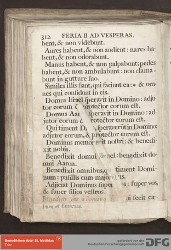 312 FERIA II AD VESPERAS.
bent, & non videbunt.
Aures habent, & non audient: nares habent, & non odorabunt.
Manus habent, & non palpabunt: pedes
habent, & non ambulabunt: non clama
bunt in gutture suo.
Similes illis fiant, qui faciunt ea: & om
nes qui confidunt in eis.
Domus Israel speravit in Domino: adju
tor eorum & protector eorum est.
Domus Aaron speravit in Domino: ad
jutor eorum & protector eorum est.
Qui timent Dominum speraverunt in Domino:
adjutor eorum, & protector eorum est.
Dominus memor fuit nostri: & benedi
xit nobis.
Benedixit domui Israel: benedixit do
mui Aaron.
Benedixit omnibus, qui timent Domi
num: pusillis cum
Adjiciat Dominus super vos: super vos,
& super filios vestros.
qui fecit cœ
DFG